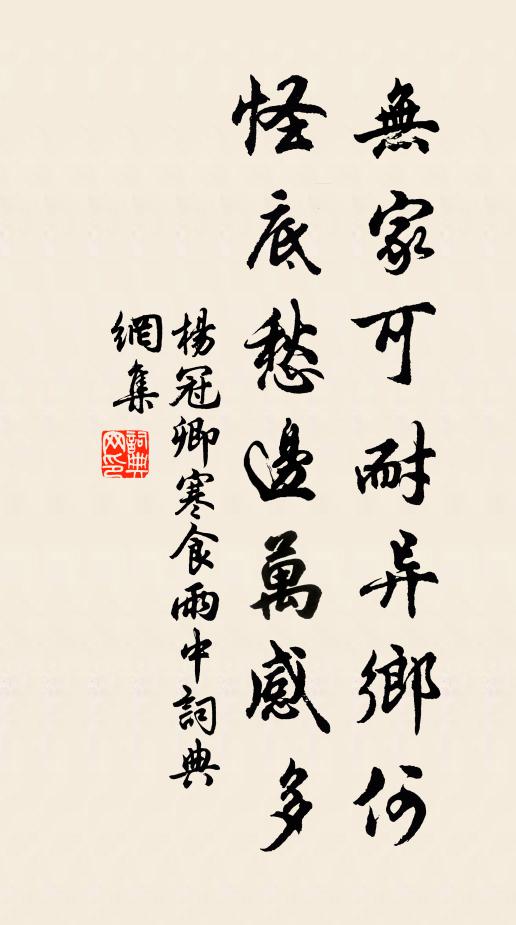 無家可耐异鄉何
怪底愁邊萬感多
楊冠卿寒食雨中詞典
網集
詞典
网印